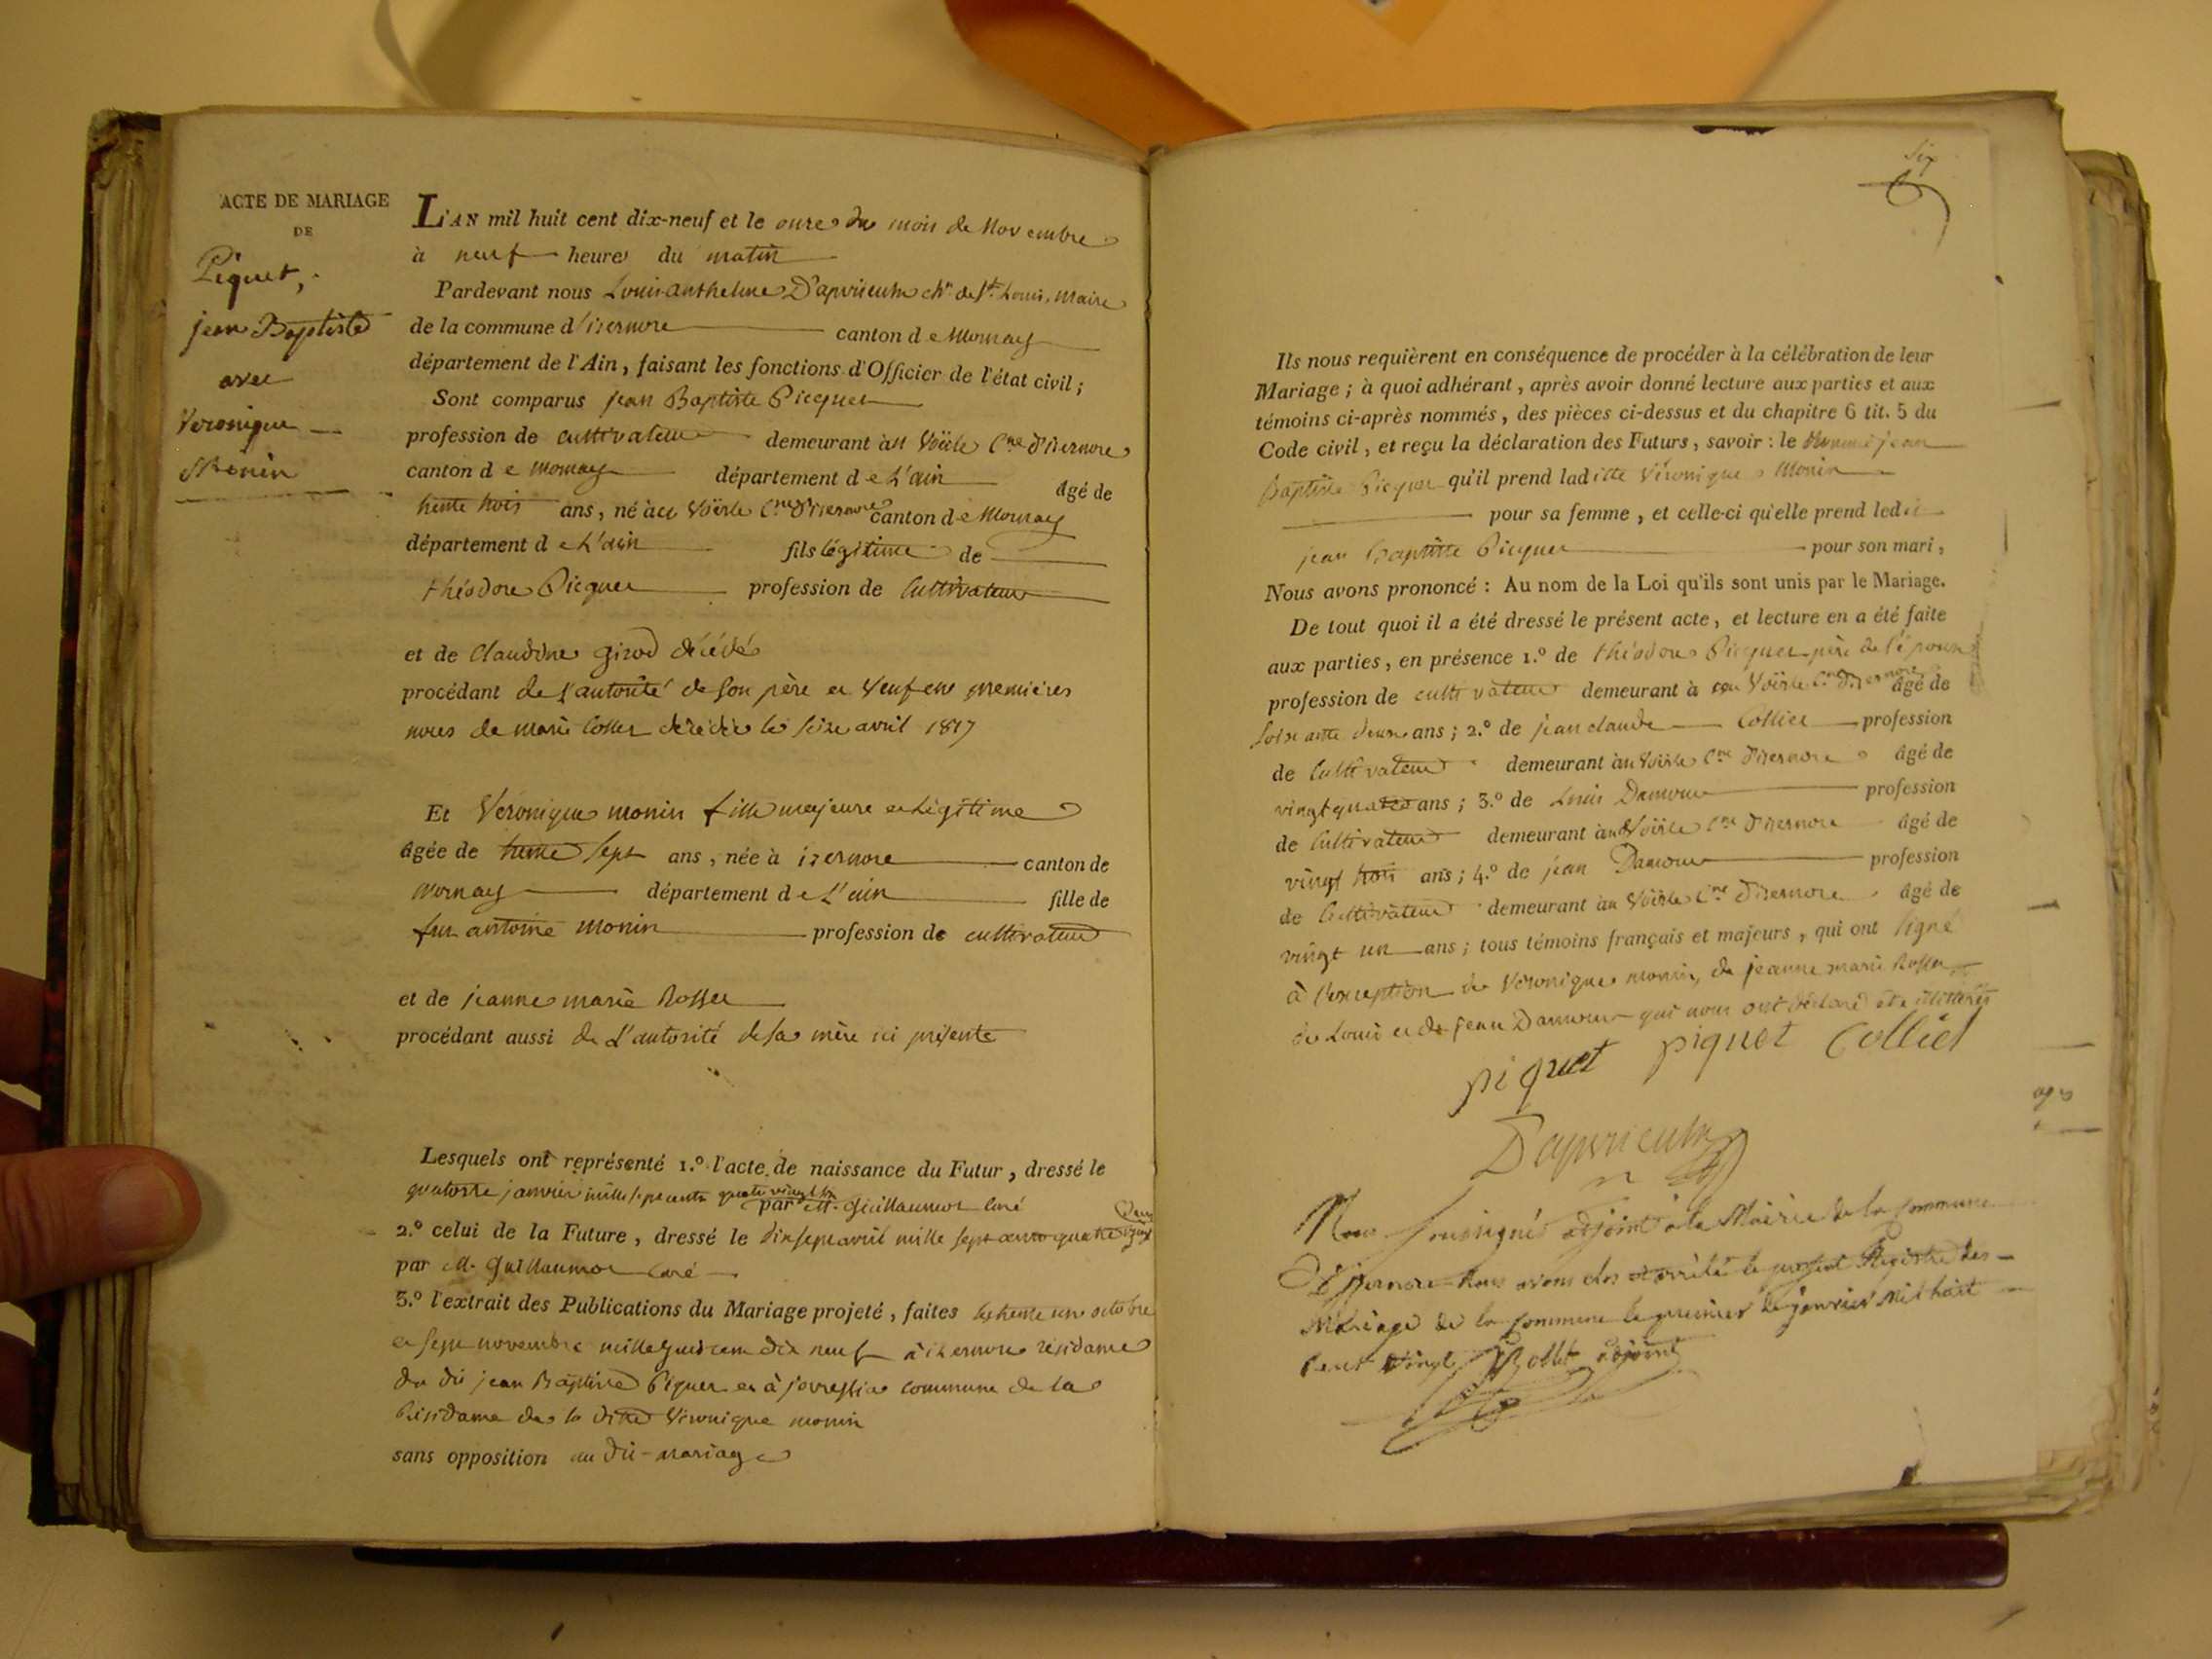 ACTE DE MARIAGE
DE
Piquet,
jean Baptiste
avec
Veronique
Monin
L'AN mil huit cent dix-neuf et le onze du mois de Novembre
à neuf heures du matin
Pardevant nous Louis anthelme D'apvrieulx chr. de St. Louis, Maire
de la commune d'izernore canton de Mornay
département de l'Ain, faisant les fonctions d'Officier de l'état civil;
Sont comparus jean Baptiste Picquet
profession de cultivateur demeurant au Voërle Cne D'izernore
canton de mornay département de L'ain âgé de
trente trois ans, né au Voërle Cne D'izernore canton de Mornay
département de L'ain fils légitime de
théodore Picquet profession de Cultivateur
et de Claudine girod décédée
procédant de l'autorité de son père et Veuf en premières
noces de marie Collet décédée le seize avril 1817
Et Véronique monin fille majeure et Légitime
âgée de trente sept ans, née à izernore canton de
Mornay département de L'ain fille de
feu antoine monin profession de cultivateur
et de jeanne marie Rosset
procédant aussi de L'autorité de sa mère ici présente
Lesquels ont représenté 1.º l'acte de naissance du Futur, dressé le
quatorze janvier mille sept cents quatre vingt six par M. Guillaumot Curé
2.º celui de la Future, dressé le dix sept avril mille sept cents quatre vingt deux
par M. Guillaumot Curé
3.º l'extrait des Publications du Mariage projeté, faites les trente un octobre
et sept novembre mille huit cent dix neuf à izernore résidance
du dit jean Baptiste Piquet et à commune de la
Résidance de la ditte Véronique monin
sans opposition au dit mariage
Six
Ils nous requièrent en conséquence de procéder à la célébration de leur
Mariage; à quoi adhérant, après avoir donné lecture aux parties et aux
témoins ci-après nommés, des pièces ci-dessus et du chapitre 6 tit. 5 du
Code civil, et reçu la déclaration des Futurs, savoir: le nommé jean
Baptiste Picquet qu'il prend laditte Véronique Monin
pour sa femme, et celle-ci qu'elle prend ledit
jean Baptiste Picquet pour son mari,
Nous avons prononcé: Au nom de la Loi qu'ils sont unis par le Mariage.
De tout quoi il a été dressé le présent acte, et lecture en a été faite
aux parties, en présence 1.º de théodore Picquet père de l'époux
profession de cultivateur demeurant à au Voërle Cne D'izernore âgé de
soixante deux ans; 2.º de jean claude Collier profession
de Cultivateur demeurant au Voërle Cne D'izernore âgé de
vingt quatre ans; 3.º de Louis Damour profession
de Cultivateur demeurant au Voërle Cne D'izernore âgé de
vingt trois ans; 4.º de jean Damour profession
de Cultivateur demeurant au Voërle Cne D'izernore âgé de
vingt un ans; tous témoins français et majeurs, qui ont signé
à l'exception de Véronique monin, de jeanne marie Rosset
de Louis et de jean Damour qui nous ont déclaré être illitérés
piquet piquet Colliet
D'apvrieulx
Nous soussigné adjoint à la Mairie de la commune
D'izernore avons clos et arrêté le présent Registre des
Mariage de la commune le premier de janvier mil huit
cent vingt Rollet adjoint